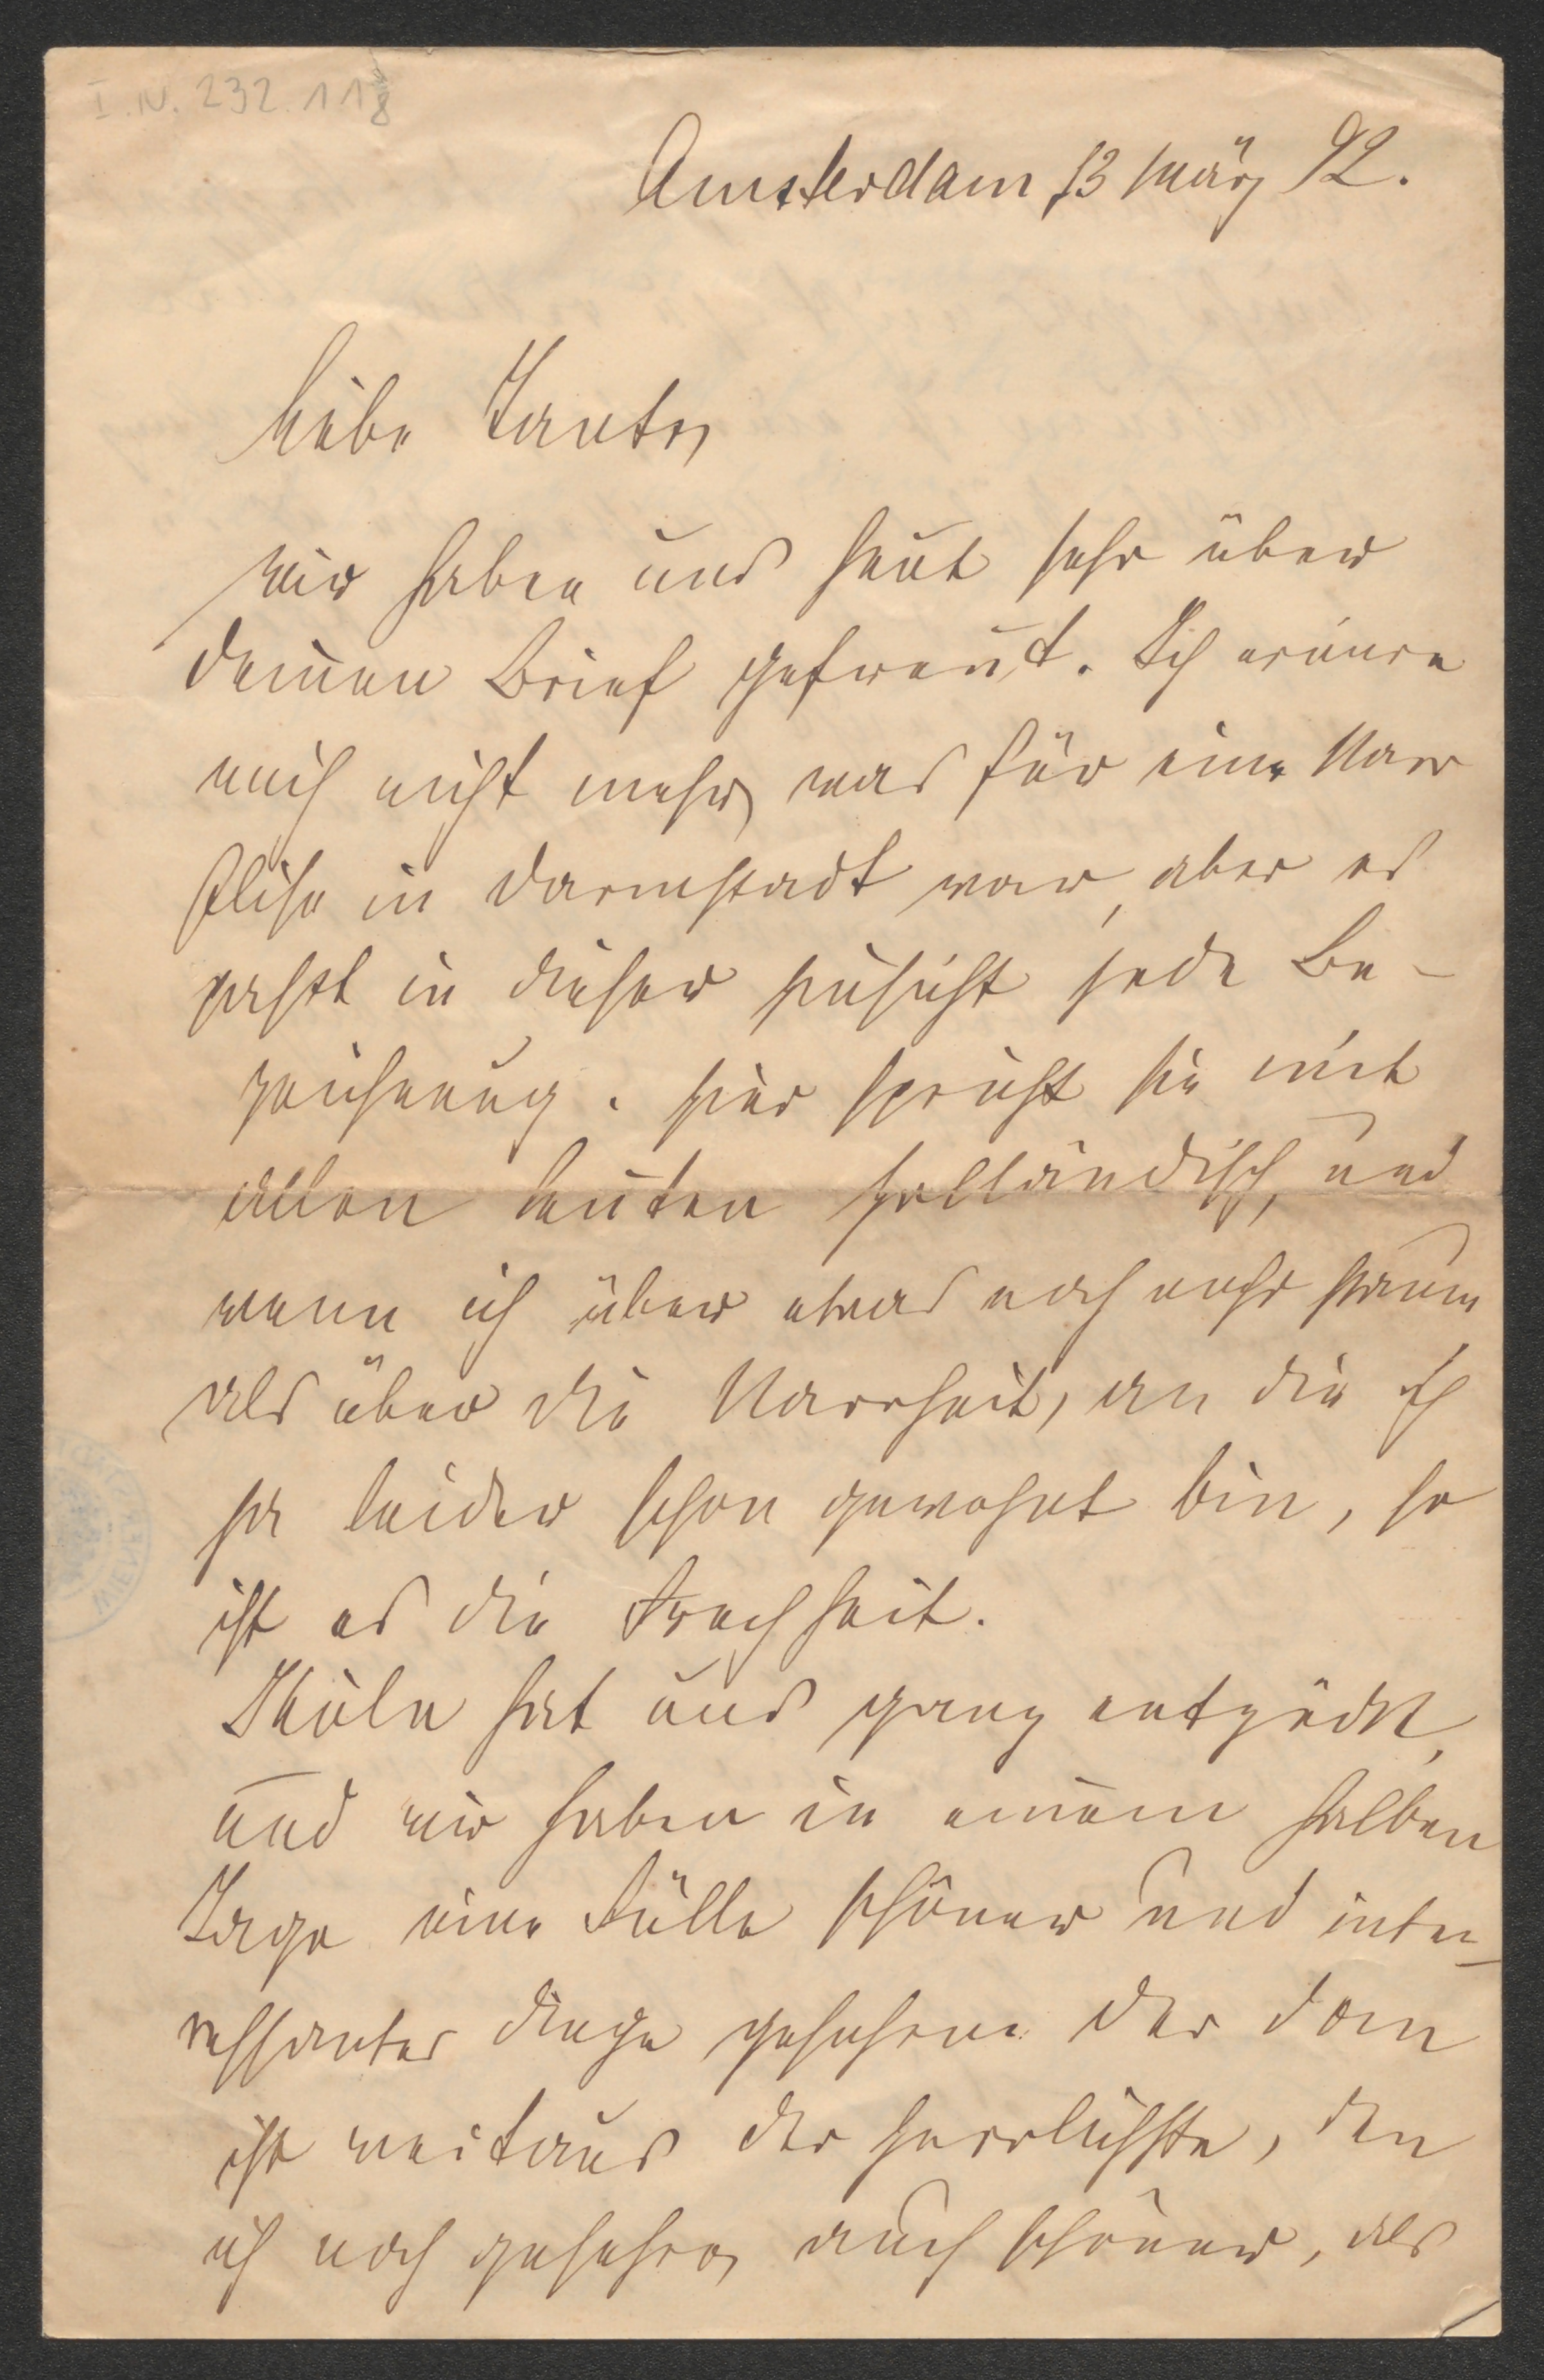 I.N. 232.118
Amsterdam 13 März 92.
Liebe Tante,
wir haben uns heut sehr über
deinen Brief gefreut. Ich erinnre
mich nicht mehr, was für eine Narr
Elise in Darmstadt war, aber es
paßt in dieser Hinsicht jede Be-
zeichnung. Hier spricht sie mit
allen Leuten holländisch, und
wenn ich über etwas noch mehr staune
als über die Narrheit, an die ich
ja leider schon gewohnt bin, so
ist es die Frechheit.
Köln hat uns ganz entzückt,
und wir haben in einem halben
Tage eine Fülle schöner und inter-
ressanter Dinge gesehen. Der Dom
ist weitaus der herrlichste, den
ich noch gesehen, auch schöner, als